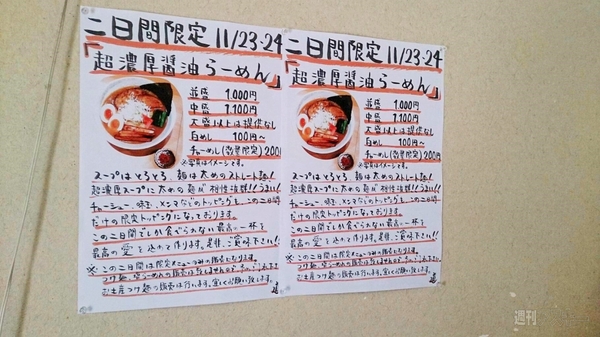 二日間限定 11/23・24
「超濃厚醤油らーめん」
並盛 1,000円
中盛 1,100円
大盛以上は提供なし
白めし 100円〜
チャーめし(数量限定)200円
※写真はイメージです。
スープはとろとろ、麺は太めのストレート麺!
超濃厚スープに太めの麺が相性抜群!!うまい!!
チャーシュー、味玉、メンマなどのトッピングも、この二日間
だけの限定トッピングになっております。
この二日間でしか食べられない最高の一杯を
最高の愛を込めて作ります。是非、ご賞味下さい!!
※この二日間は限定メニューのみの販売になります。
つけ麺、
お土産つけ麺の販売は行います。宜しくお願い致します。
二日間限定 11/23・24
「超濃厚醤油らーめん」
並盛 1,000円
中盛 1,100円
大盛以上は提供なし
白めし 100円〜
チャーめし(数量限定)200
※写真はイメージです。
スープはとろとろ、麺は太めのストレート麺!
超濃厚スープに太めの麺が相性抜群!!うまい!!
チャーシュー、味玉、メンマなどのトッピングも、この二日間
だけの限定トッピングになっております。
この二日間でしか食べられない最高の一杯を
最高の愛を込めて作ります。是非、ご賞味下さい!!
※この二日間は限定メニューのみの販売になります。
つけ麺、
お土産つけ麺の販売は行います。宜しくお願い致します。
週刊